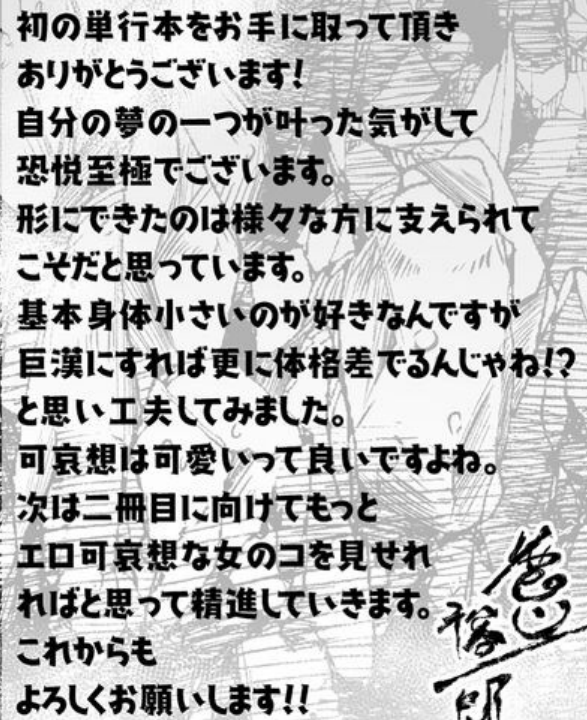 初の単行本をお手に取って頂き
ありがとうございます!
自分の夢の一つが叶った気がして
恐悦至極でございます。
形にできたのは様々な方に支えられて
こそだと思っています。
基本身体小さいのが好きなんですが
巨漢にすれば更に体格差でるんじゃね!?
と思い工夫してみました。
可哀想は可愛いって良いですよね。
次は二冊目に向けてもっと
エロ可哀想な女のコを見せれ
ればと思って精進していきます。
これからも
よろしくお願いします!!